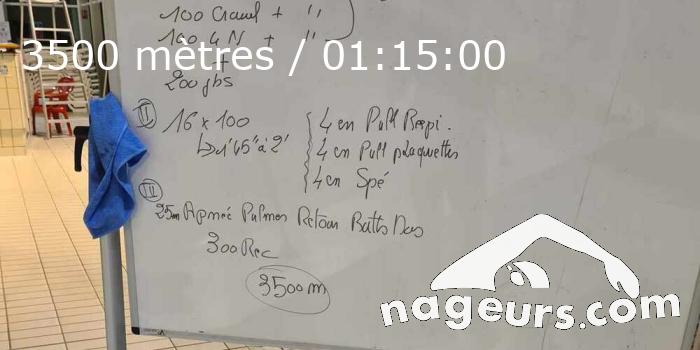 100 Crawl + "
100 4N + "
3500 mètres / 01:15:00
+
200 jbs
II 16 x 100
↳ 1'45" à 2'
4 en Pull Respi.
4 en Pull plaquettes
4 en Spé
III
25m Apnée Palmes Retour Batts Dos
300 Rec
3500m
nageurs.com